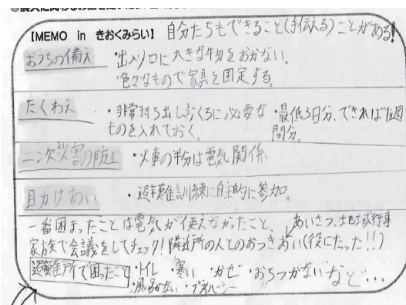 【MEMO in きおくみらい】 自分たちもできること(手伝える)ことがある!
おうちの備え
・出入り口に大きな物をおかない。
・色々なもので家具を固定する。
たくわえ
・非常持ち出しぶくろに必要なものを入れておく。
・最低3日分、できれば1週間分。
二次災害の防止
・火事の半分は電気関係
助けあい
・避難訓練に自主的に参加。
一番困まったことは電気が使えなかったこと。
あいさつ、地域行事
家族で会議をしてチェック!隣近所の人とのおつきあい(役にたった!!)
避難所で困ったこと ・トイレ ・寒い ・カゼ ・おちつかない など…
・風呂がない ・プライバシー